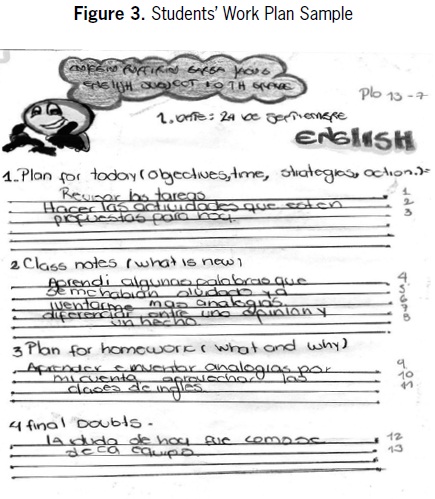 Figure 3. Students' Work Plan Sample
ENGLISH SUBJECT 10 TH GRADE
Plo 13-7
1. DATE: 24 de septiembre
ENGLISH
1. Plan for today (objectives, time, strategies, action.)=
Revisar las tareas 1
Hacer las actividades que esten 2
propuestas para hoy. 3
2 Class notes (what is new)
Aprendi algunas palabras que 4
se me habian olvidado y a 5
inventarme mas analogias 6
diferenciar entre una opinion y 7
un hecho. 8
3 Plan for homework (what and why)
Aprender e inventar analogias por 9
mi cuenta aprovechar las 10
clases de ingles. 11
4 final Doubts.
la duda de hoy fue como se 12
equipo 13